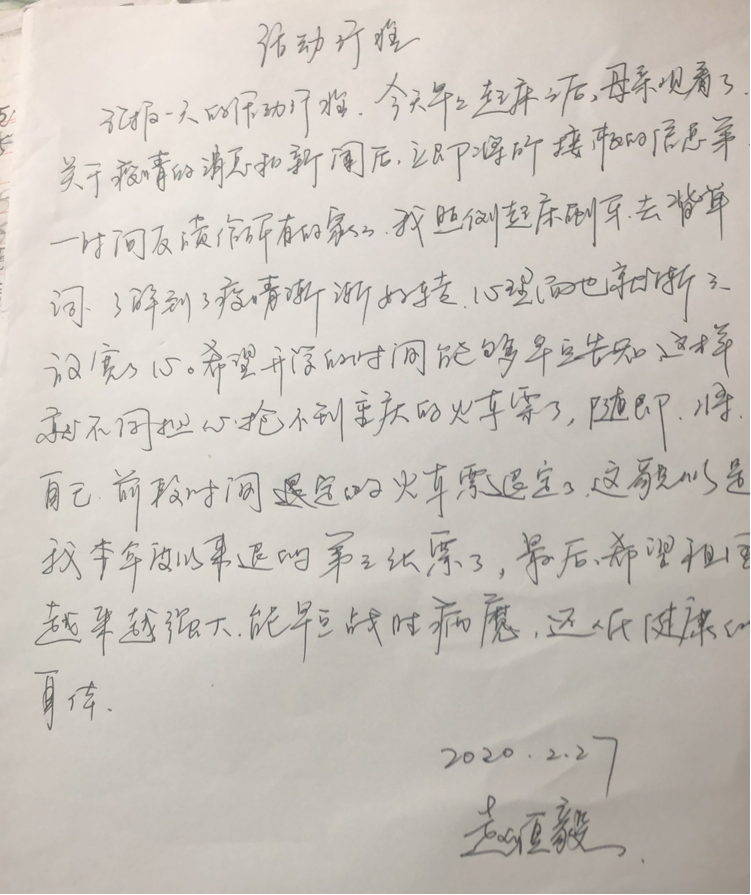 活动行程
汇报一天的活动行程。今天早上起床之后,母亲观看了
关于疫情的消息和新闻后,立即将所接收的信息第
一时间反馈给所有的家人。我照例起床刷牙.去背单
词.了解到了疫情渐渐好转.心理面也就渐渐
放宽了心。希望开学的时间能够早点告知,这样
就不用担心抢不到重庆的火车票了,随即.将
自己.前段时间 预定的火车票退定了.这貌似是
我本年度以来退的第三张票了,最后,希望祖国
越来越强大.能早点战胜病魔,还人民健康的
身体.
2020.2.27
赵恒毅